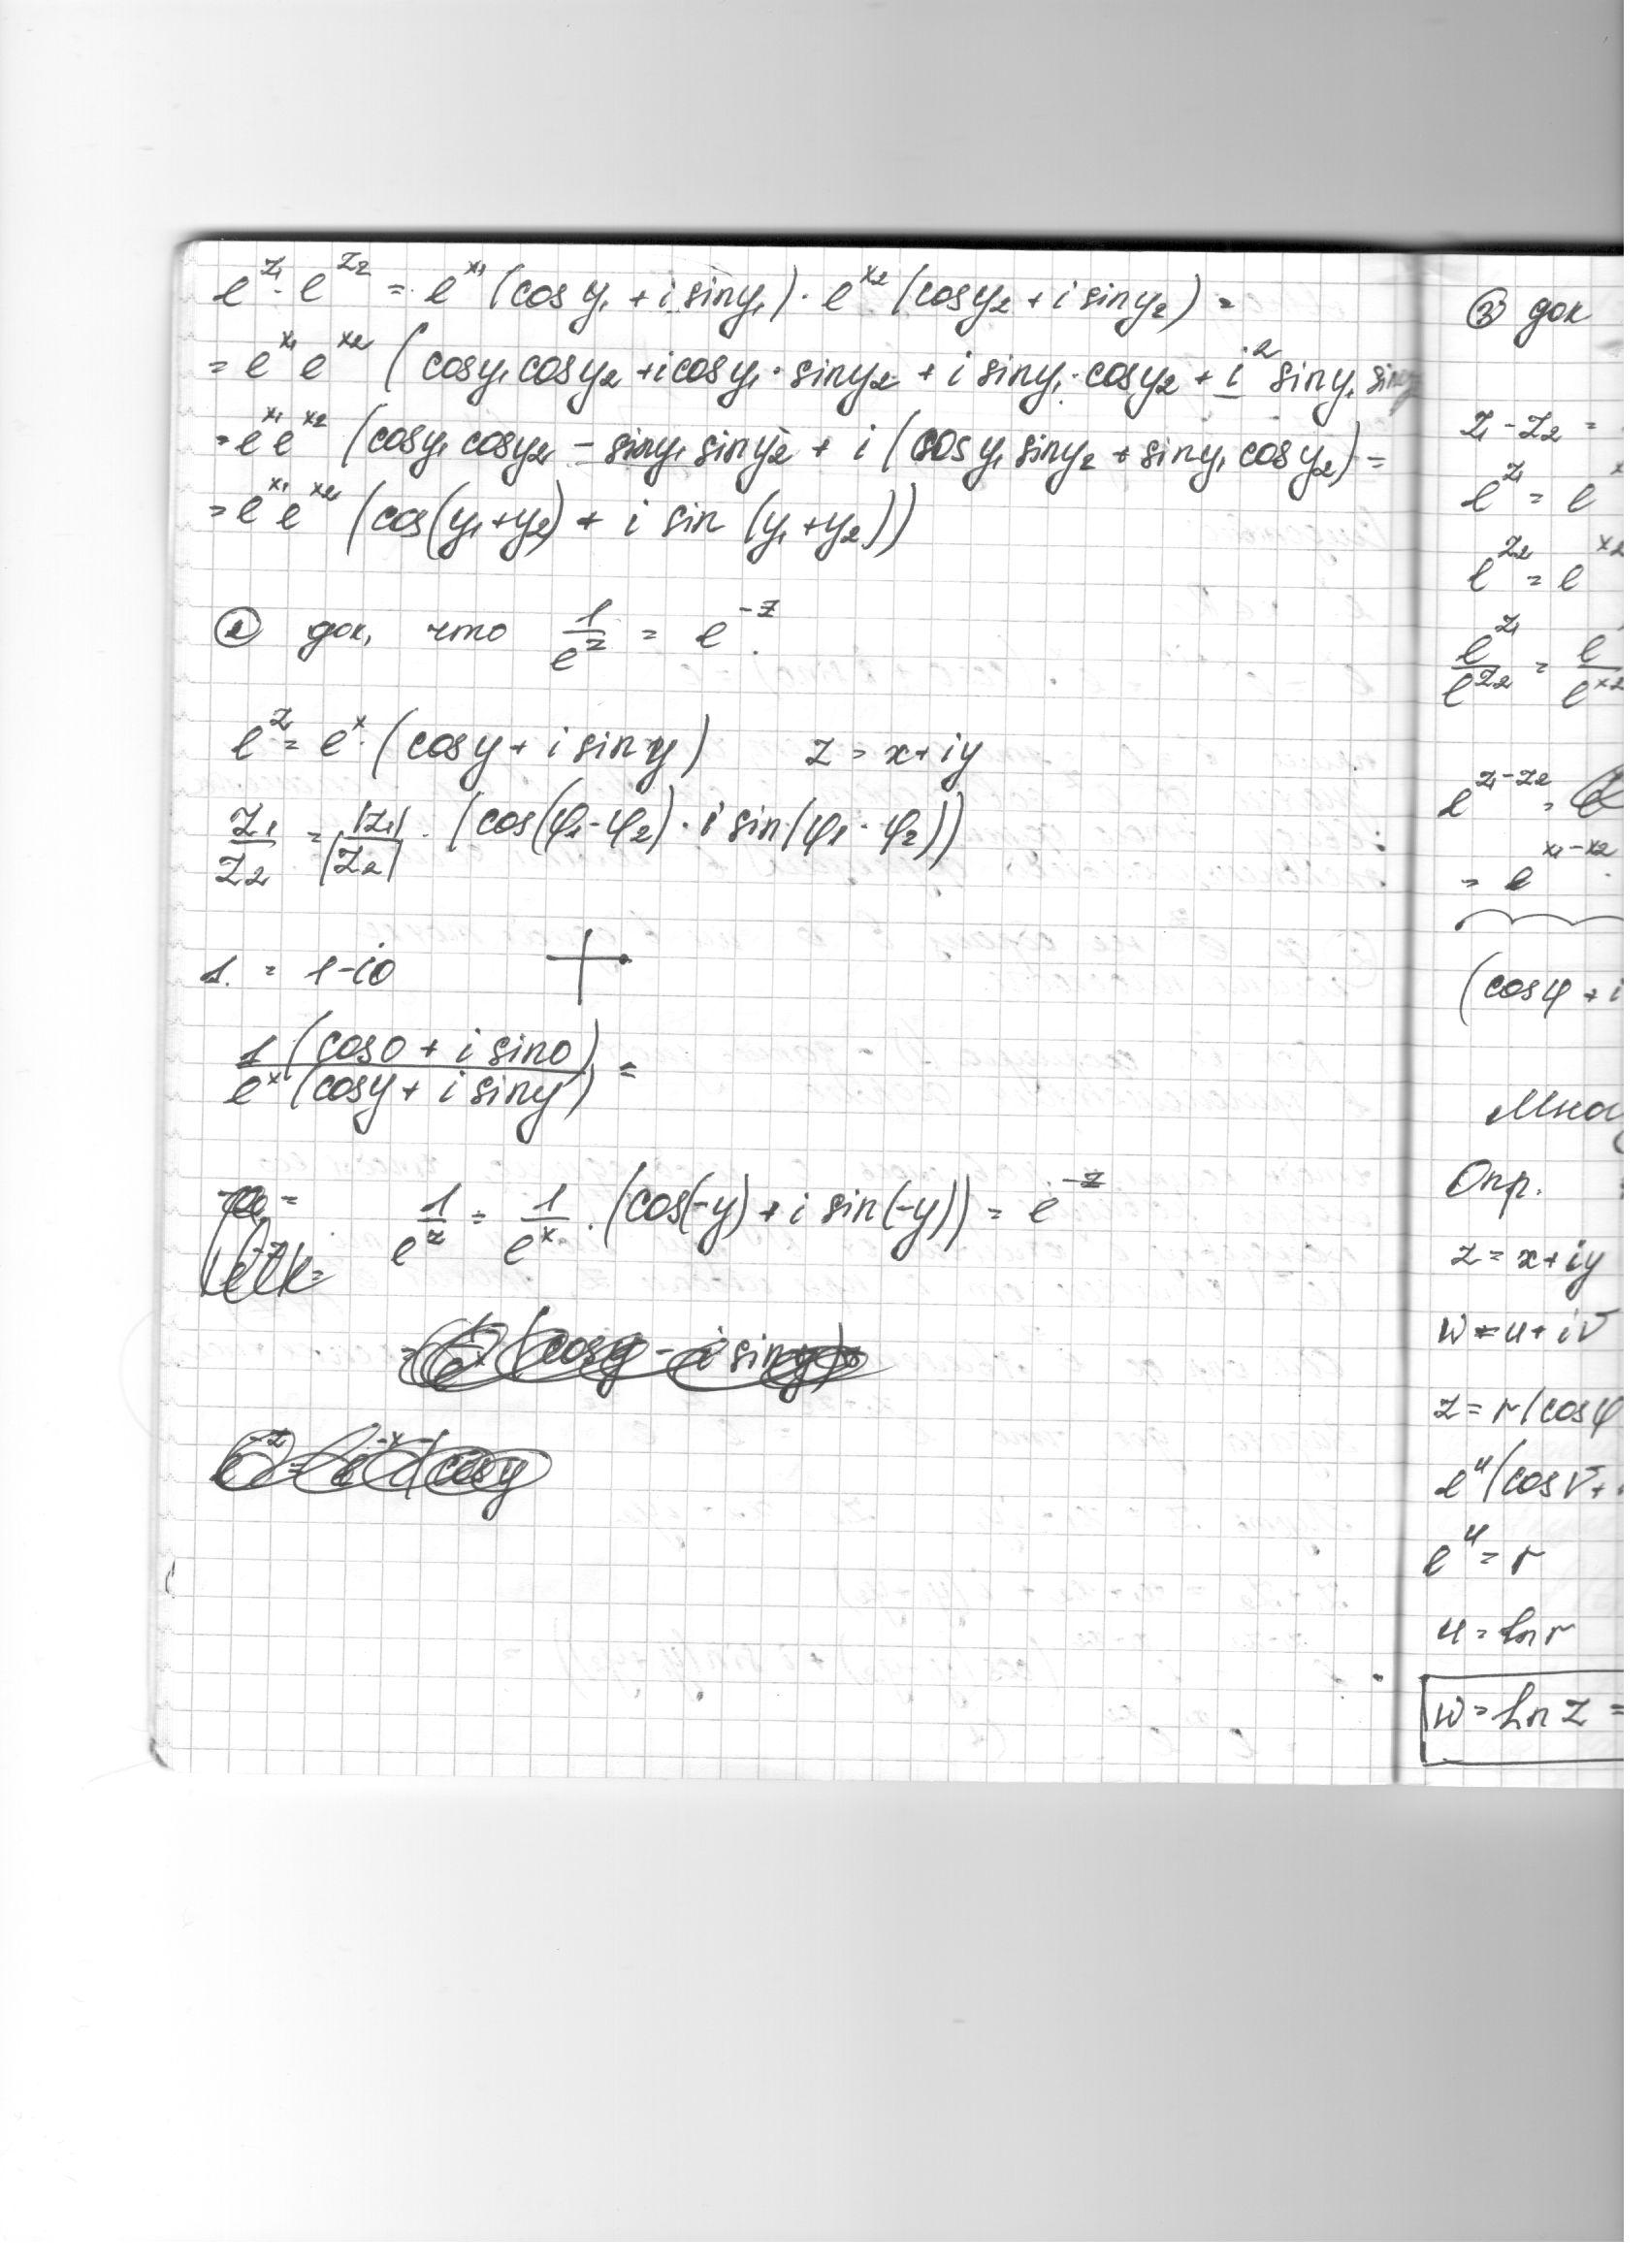 e^{z₁} · e^{z₂} = e^{x₁} (cos y₁ + i sin y₁) · e^{x₂} (cos y₂ + i sin y₂) =
= e^{x₁} e^{x₂} ( cos y₁ cos y₂ + i cos y₁ · sin y₂ + i sin y₁ · cos y₂ + i² sin y₁ sin y₂
= e^{x₁} e^{x₂} (cos y₁ cos y₂ − sin y₁ sin y₂ + i (cos y₁ sin y₂ + sin y₁ cos y₂) =
= e^{x₁} e^{x₂} (cos(y₁+y₂) + i sin (y₁+y₂))
② док, что 1/e^z = e^{-z}
e^z = e^x · (cos y + i sin y) z = x+iy
z₁/z₂ = |z₁|/|z₂| · (cos(φ₁-φ₂) · i sin(φ₁ - φ₂))
1. = 1-i0
1 (cos 0 + i sin 0)/e^x (cos y + i sin y) =
1/e^z = 1/e^x · (cos(-y) + i sin(-y)) = e^{-z}
③ док
z₁ - z₂ =
e^{z₁} = e
e^{z₂} = e^{x₂}
e^{z₁}/e^{z₂} = e/e^{x₂}
e^{z₁-z₂} =
= e^{x₁-x₂}
(cos φ + i
Опр.
z = x+iy
w = u+iv
z = r(cos φ
e^u (cos v +
e^u = r
u = ln r
w = Ln z =